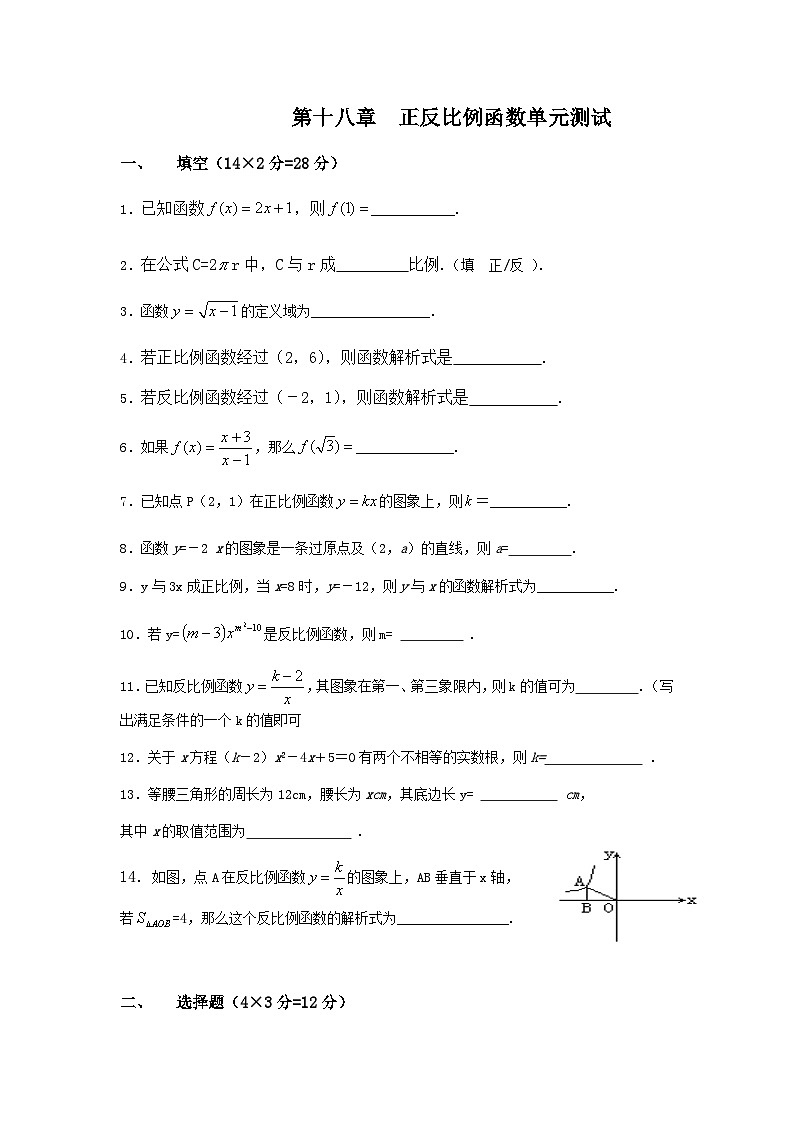 第十八章 正反比例函数单元测试
一、 填空（14×2分=28分）
1.已知函数f(x)=2x+1，则f(1)=___________.
2.在公式C=2πr中，C与r成_________比例.（填 正/反 ）.
3.函数y=√(x-1)的定义域为_________________.
4.若正比例函数经过（2，6），则函数解析式是___________.
5.若反比例函数经过（-2，1），则函数解析式是___________.
6.如果f(x)=(x+3)/(x-1)，那么f(√3)=______________.
7.已知点P（2，1）在正比例函数y=kx的图象上，则k=___________.
8.函数y=-2 x的图象是一条过原点及（2，a）的直线，则a=_________.
9.y与3x成正比例，当x=8时，y=-12，则y与x的函数解析式为___________.
10.若y=(m-3)x^(m²-10)是反比例函数，则m= _________ .
11.已知反比例函数y=(k-2)/x,其图象在第一、第三象限内,则k的值可为_________.（写
出满足条件的一个k的值即可
12.关于x方程（k-2）x²-4x+5=0有两个不相等的实数根，则k=______________ .
13.等腰三角形的周长为12cm，腰长为xcm，其底边长y= ___________ cm，
其中x的取值范围为_______________ .
14. 如图，点A在反比例函数y=k/x的图象上，AB垂直于x轴，
若S△AOB=4，那么这个反比例函数的解析式为________________.
y
A
B O x
二、 选择题（4×3分=12分）